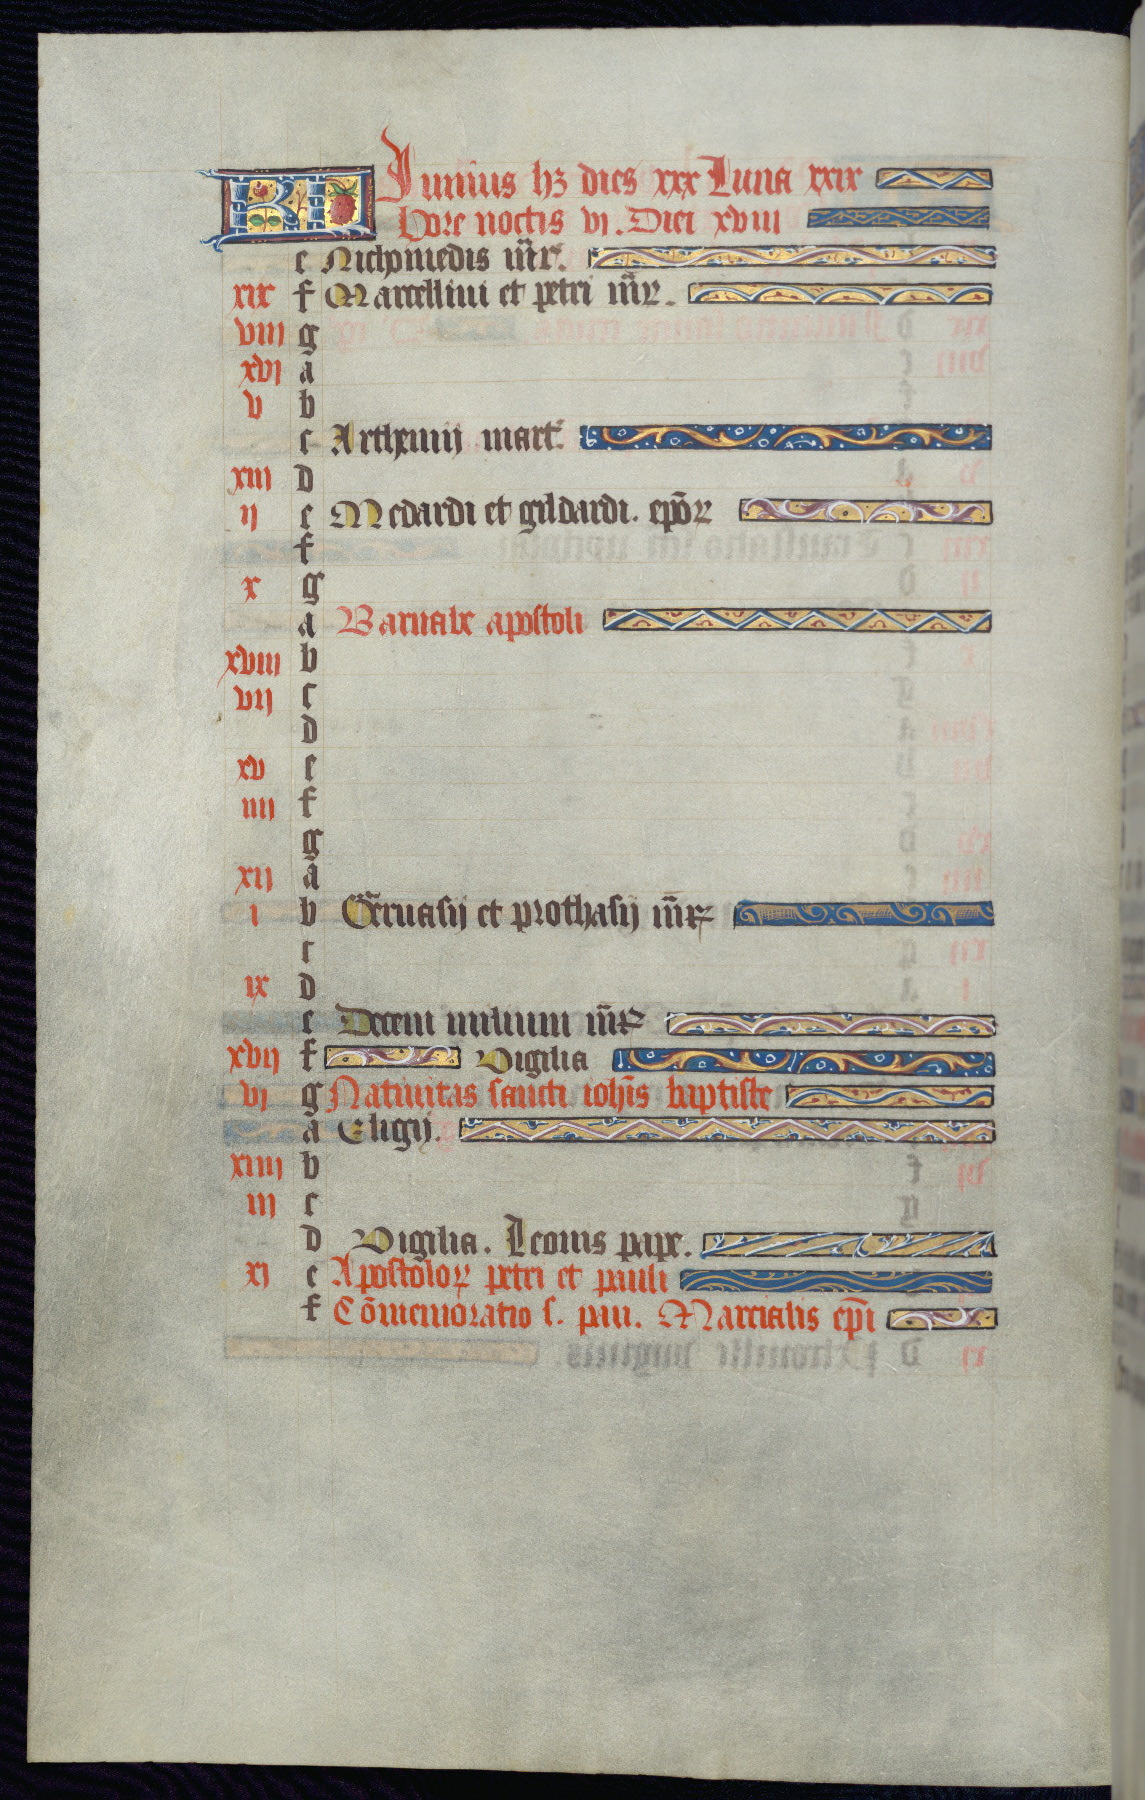 KL Junius hꝫ dies xxx Luna xxix
hore noctis vj. Diei xviii
e Nichomedis m̄r.
xix f Marcellini et petri m̄r.
viii g
xvj a
v b
c Arthemij mart.
xiii d
ij e Medardi et gildardi. ep̄oꝝ
f
x g
a Barnabe apostoli
xviii b
vij c
d
xv e
iiij f
g
xij a
i b Geruasij et prothasij m̄rꝝ
c
ix d
e Decem milium m̄rꝝ
xvij f Vigilia
vj g Natiuitas sancti ioh̄is baptiste
a Eligij.
xiiij b
iij c
d Vigilia. Leonis pape.
xj e Apostoloꝝ petri et pauli
f Cōmemoratio s. pau. Marcialis ep̄i